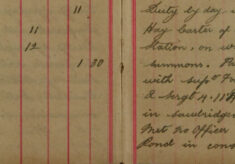 11
11
12
1 30
Duty by day.
Hay Carter of
Station, on
summons.
with supt
& Sergt 4.
in Sawbridge
Met no Officer
Pond in cons